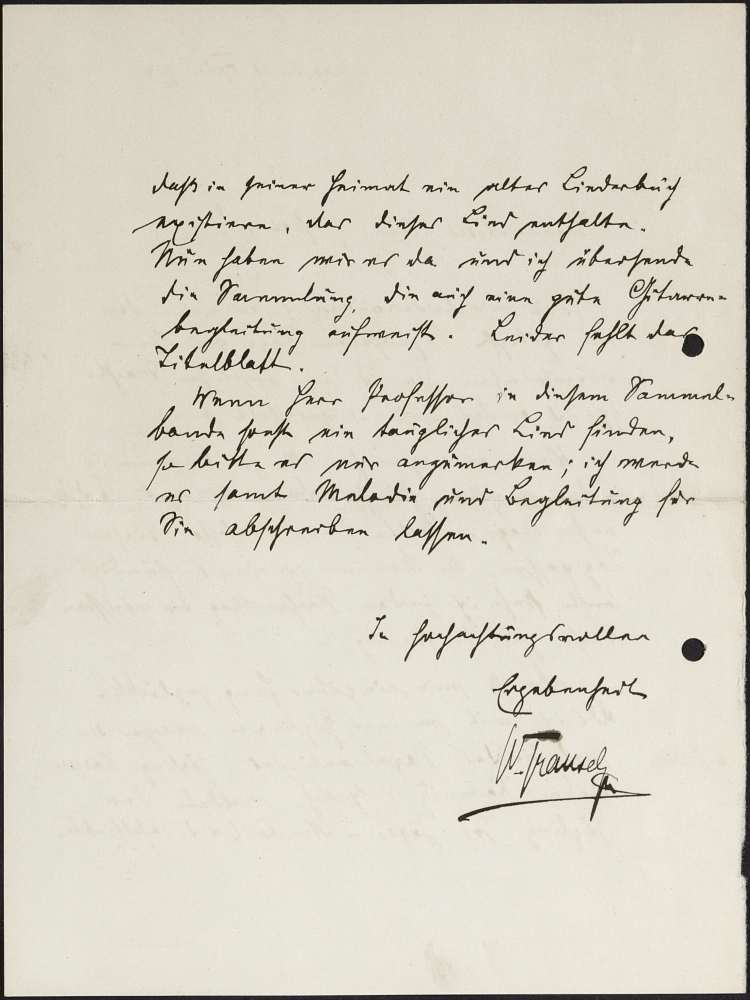 daß in seiner Heimat ein altes Liederbuch
existiere, das dieses Lied enthalte.
Nun haben wir es da und ich übersende
die Sammlung, die auch eine gute Gitarre-
begleitung aufweist. Leider fehlt das
Titelblatt.
Wenn Herr Professor in diesem Sammel-
bande sonst ein taugliches Lied finden,
so bitte es nur anzumerken; ich werde
es samt Melodie und Begleitung für
Sie abschreiben lassen.
In hochachtungsvoller
Ergebenheit
W. Transel